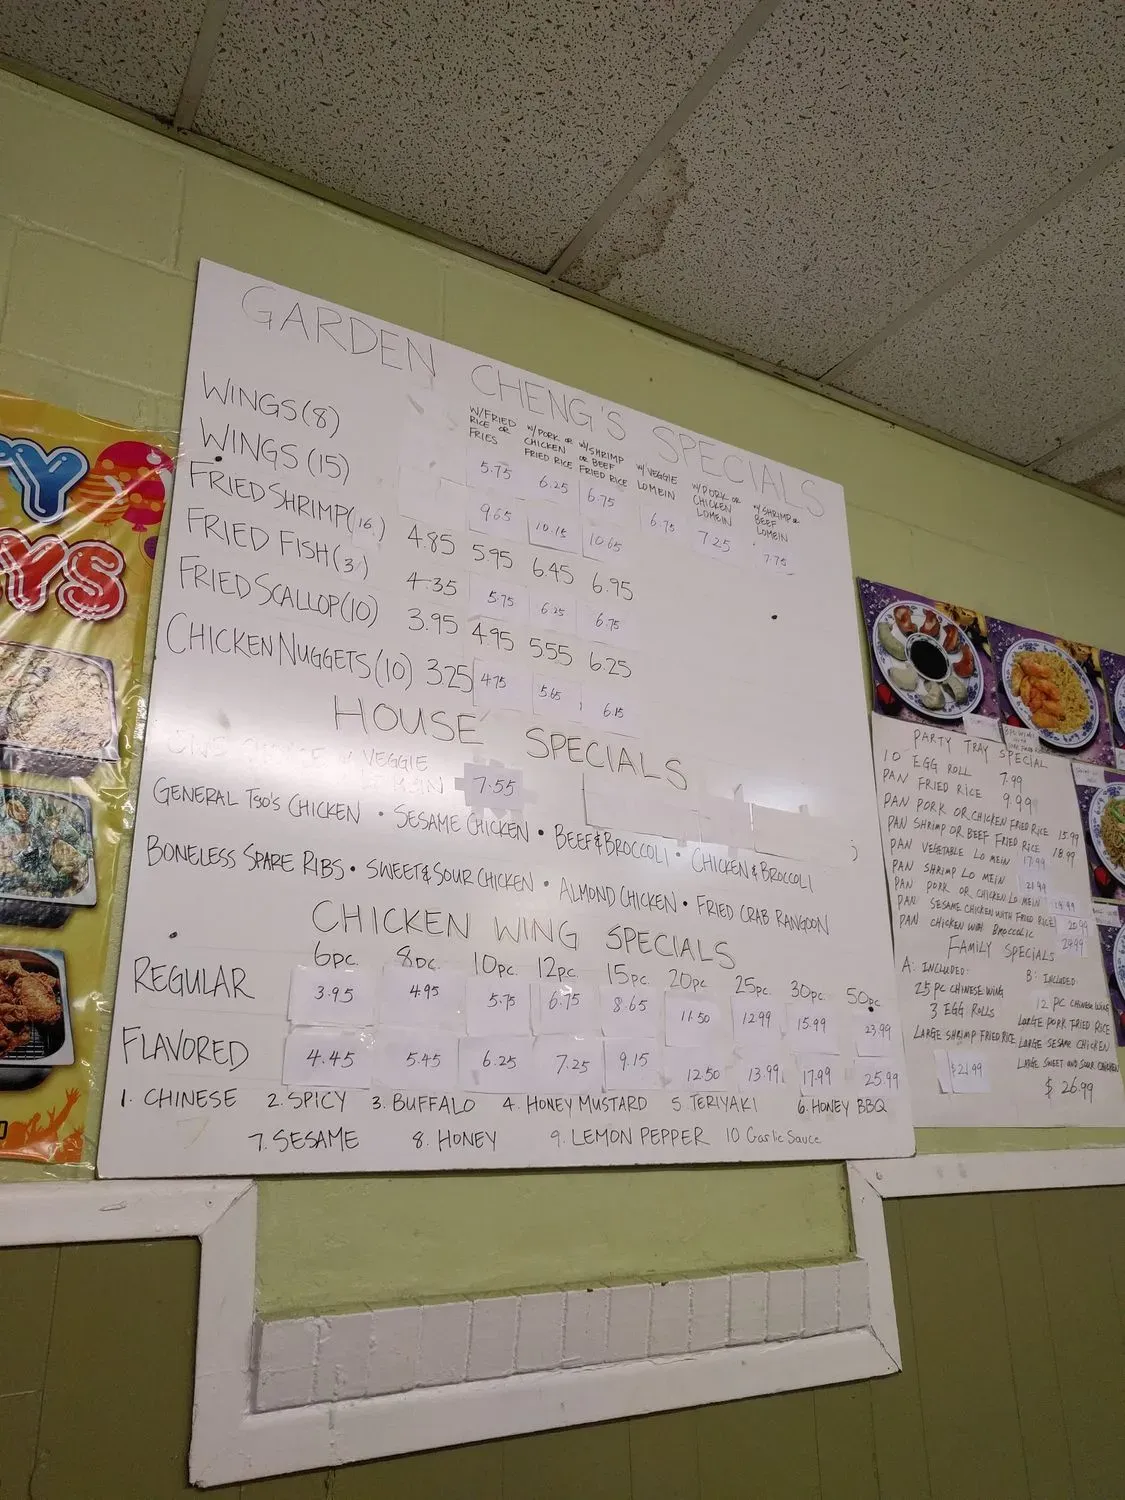 GARDEN CHENG'S SPECIALS
W/FRIED RICE OR FRIES
W/PORK OR CHICKEN FRIED RICE
W/SHRIMP OR BEEF FRIED RICE
W/ VEGGIE LOMEIN
W/PORK OR CHICKEN LOMEIN
W/SHRIMP OR BEEF LOMEIN
WINGS (8) 5.75 6.25 6.75 6.75 7.25 7.75
WINGS (15) 9.65 10.15 10.65
FRIED SHRIMP (16) 4.85 5.95 6.45 6.95
FRIED FISH (3) 4.35 5.75 6.25 6.75
FRIED SCALLOP (10) 3.95 4.95 555 6.25
CHICKEN NUGGETS (10) 3.25 4.75 5.65 6.15
HOUSE SPECIALS
VEGGIE
7.55
GENERAL TSO'S CHICKEN • SESAME CHICKEN • BEEF & BROCCOLI • CHICKEN & BROCCOLI
BONELESS SPARE RIBS • SWEET & SOUR CHICKEN • ALMOND CHICKEN • FRIED CRAB RANGOON
CHICKEN WING SPECIALS
6pc. 8pc. 10pc. 12pc. 15pc. 20pc. 25pc. 30pc. 50pc.
REGULAR 3.95 4.95 5.75 6.75 8.65 11.50 12.99 15.99 23.99
FLAVORED 4.45 5.45 6.25 7.25 9.15 12.50 13.99 17.99 25.99
1. CHINESE 2. SPICY 3. BUFFALO 4. HONEY MUSTARD 5. TERIYAKI 6. HONEY BBQ
7. SESAME 8. HONEY 9. LEMON PEPPER 10 Garlic Sauce
PARTY TRAY SPECIAL
10 EGG ROLL 7.99
PAN FRIED RICE 9.99
PAN PORK OR CHICKEN FRIED RICE 15.99
PAN SHRIMP OR BEEF FRIED RICE 18.99
PAN VEGETABLE LO MEIN 17.99
PAN SHRIMP LO MEIN 21.99
PAN PORK OR CHICKEN LO MEIN
PAN SESAME CHICKEN WITH FRIED RICE
PAN CHICKEN WITH BROCCOLIC
FAMILY SPECIALS
A: INCLUDED:
25 PC CHINESE WING
3 EGG ROLLS
LARGE SHRIMP FRIED RICE
$21.99
B: INCLUDED
12 PC CHINESE WING
LARGE PORK FRIED RICE
LARGE SESAME CHICKEN
LARGE SWEET AND SOUR CHICKEN
$ 26.99